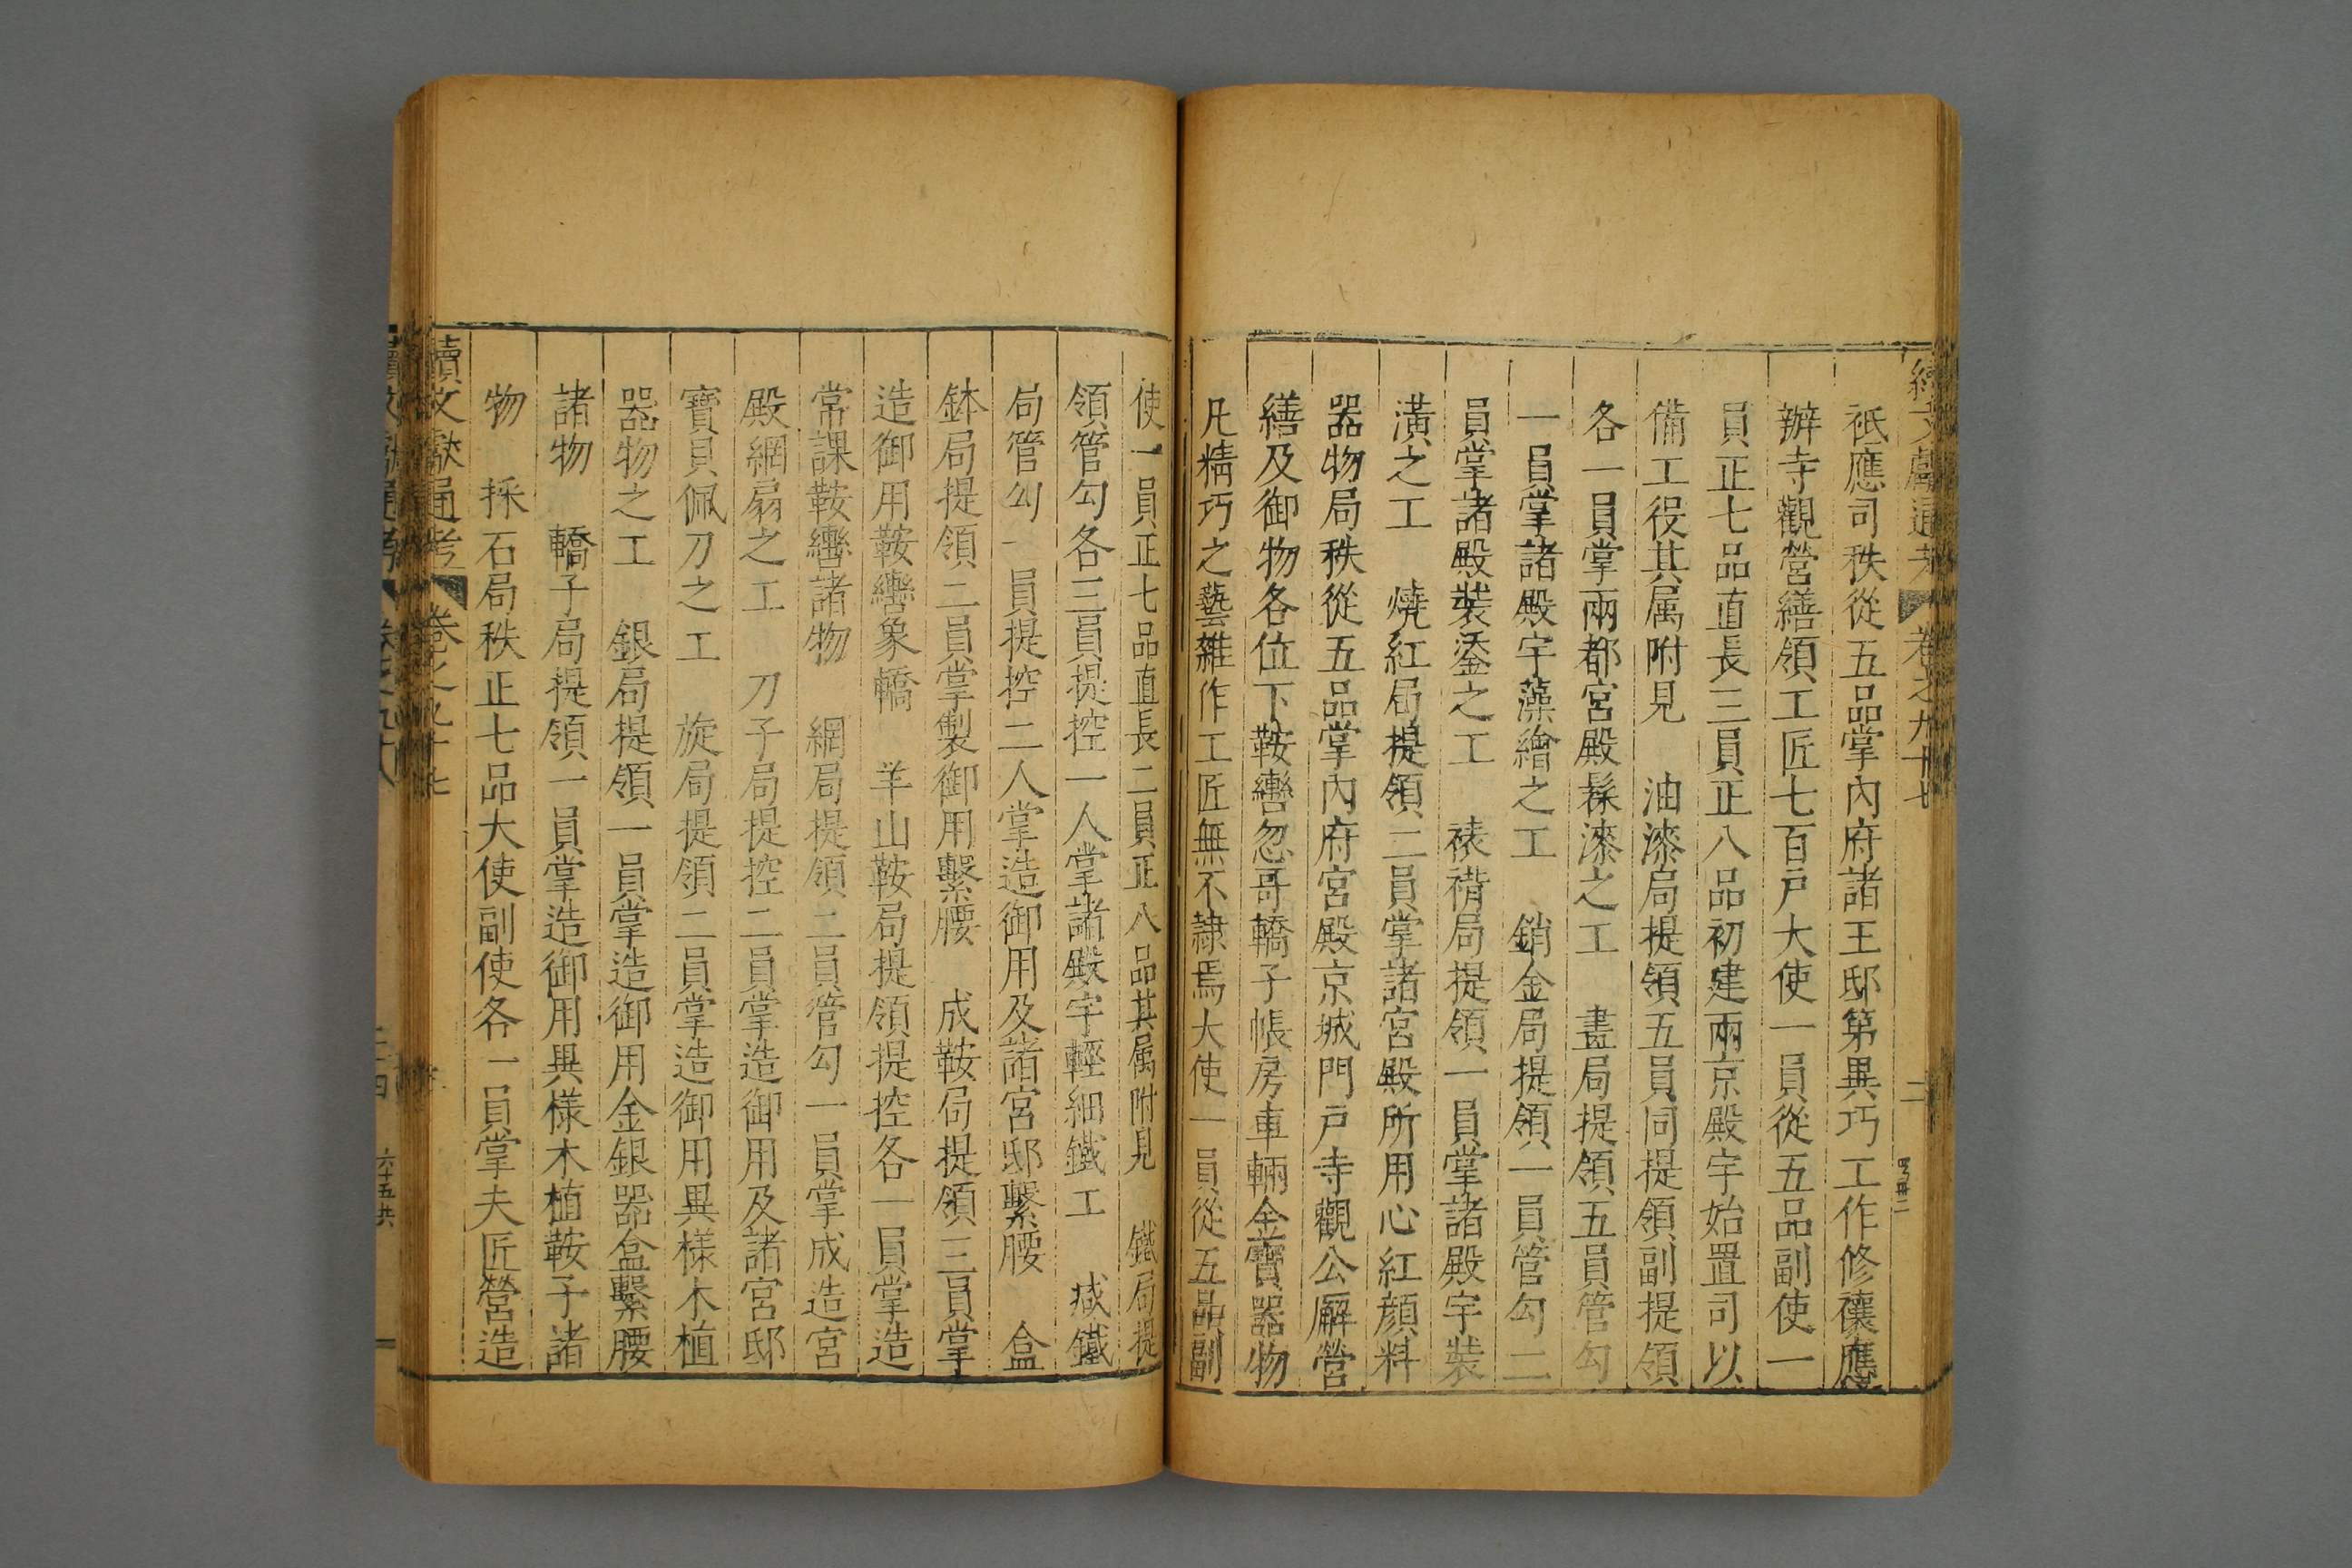 續文獻通考 卷之九十七 二
祗應司秩從五品掌內府諸王邸第異巧工作修禳應
辦寺觀營繕領工匠七百戶大使一員從五品副使一
員正七品直長三員正八品初建兩京殿宇始置司以
備工役其属附見 油漆局提領五員同提領副提領
各一員掌兩都宮殿髹漆之工 畫局提領五員管勾
一員掌諸殿宇藻繪之工 銷金局提領一員管勾二
員掌諸殿裝鋈之工 裱褙局提領一員掌諸殿宇裝
潢之工 燒紅局提領二員掌諸宮殿所用心紅顏料
器物局秩從五品掌內府宮殿京城門戶寺觀公廨營
繕及御物各位下鞍轡忽哥轎子帳房車輛金寶器物
凡精巧之藝雜作工匠無不隷焉大使一員從五品副
使一員正七品直長二員正八品其属附見 鐵局提
領管勾各三員提控一人掌諸殿宇輕細鐵工 㓕鐵
局管勾一員提控二人掌造御用及諸宮邸繫腰 盒
鉢局提領二員掌製御用繫腰 成鞍局提領三員掌
造御用鞍轡象轎 羊山鞍局提領提控各一員掌造
常課鞍轡諸物 網局提領二員管勾一員掌成造宮
殿網扇之工 刀子局提控二員掌造御用及諸宮邸
寶貝佩刀之工 旋局提領二員掌造御用異樣木植
器物之工 銀局提領一員掌造御用金銀器盒繫腰
諸物 轎子局提領一員掌造御用異樣木植鞍子諸
物 採石局秩正七品大使副使各一員掌夫匠營造
續文獻通考 卷之九十七